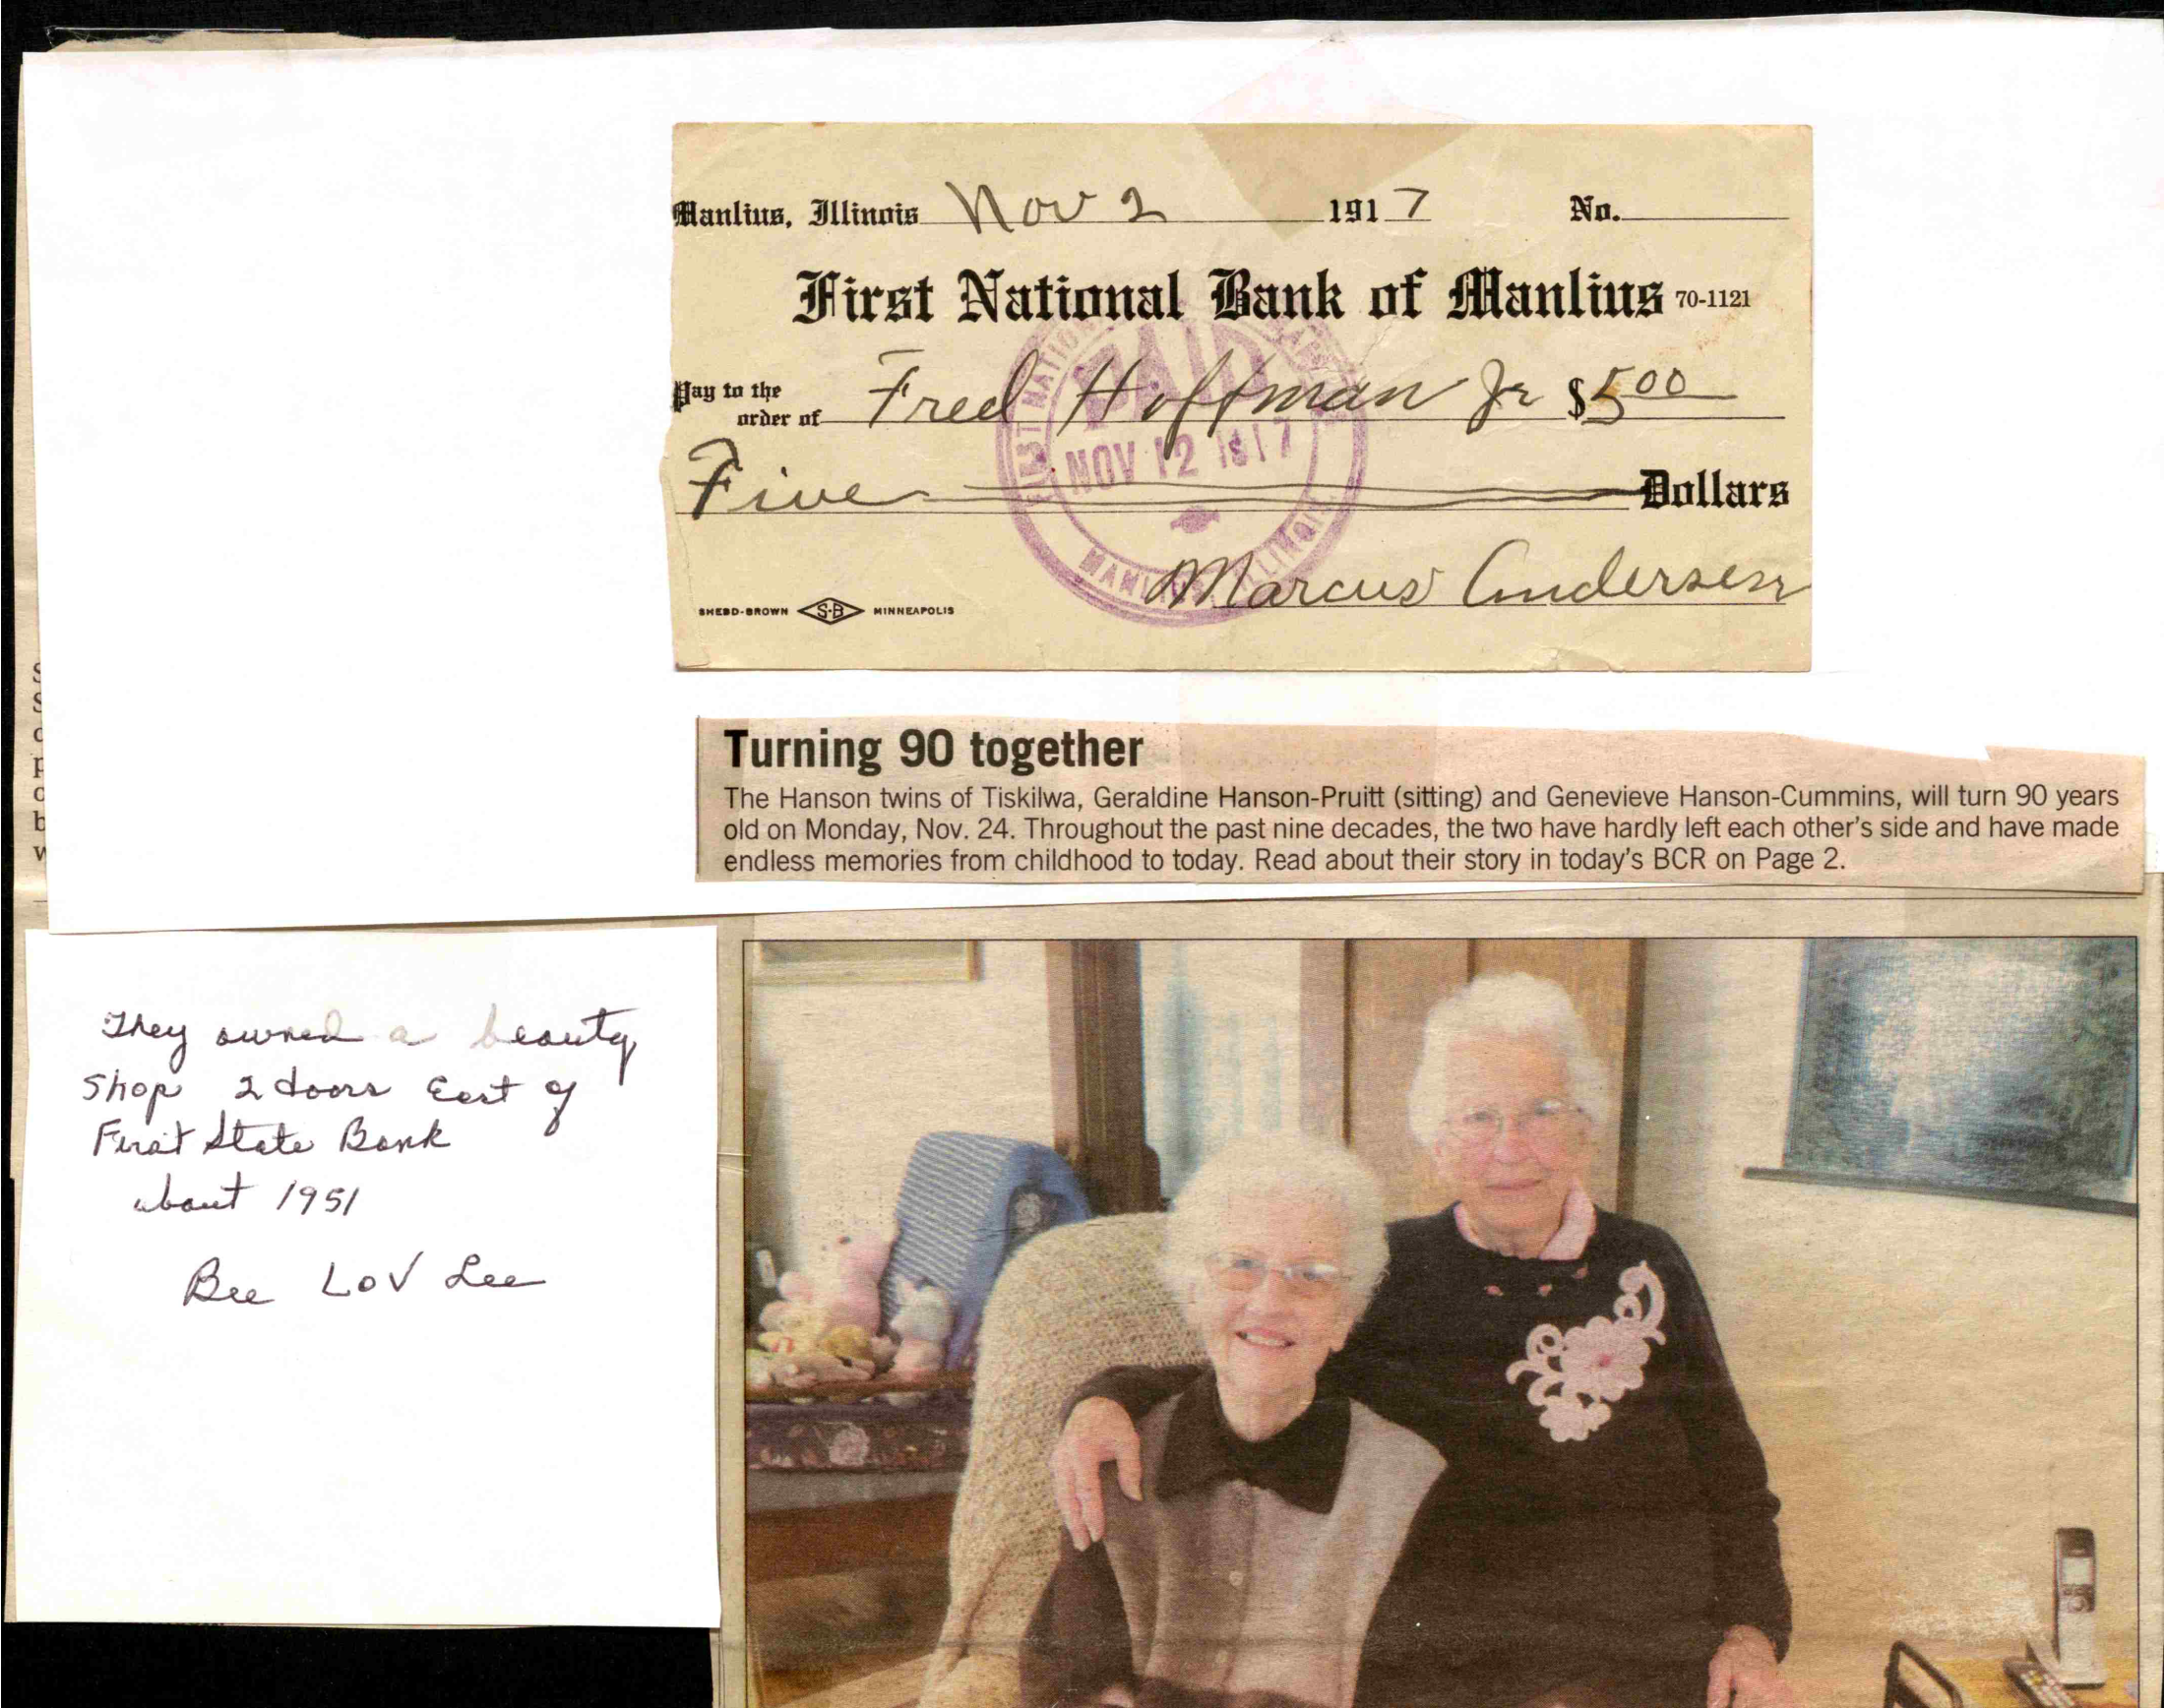 Manlius, Illinois Nov 2 1917 No.
First National Bank of Manlius 70-1121
Pay to the
order of Fred Hoffman Jr $5.00
Five Dollars
Marcus Andersen
SHEDD-BROWN S-B MINNEAPOLIS
FIRST NATIONAL
PAID
NOV 12 1917
MANLIUS, ILLINOIS
Turning 90 together
The Hanson twins of Tiskilwa, Geraldine Hanson-Pruitt (sitting) and Genevieve Hanson-Cummins, will turn 90 years
old on Monday, Nov. 24. Throughout the past nine decades, the two have hardly left each other's side and have made
endless memories from childhood to today. Read about their story in today's BCR on Page 2.
They owned a beauty
Shop 2 doors East of
First State Bank
about 1951
Bee LoV Lee